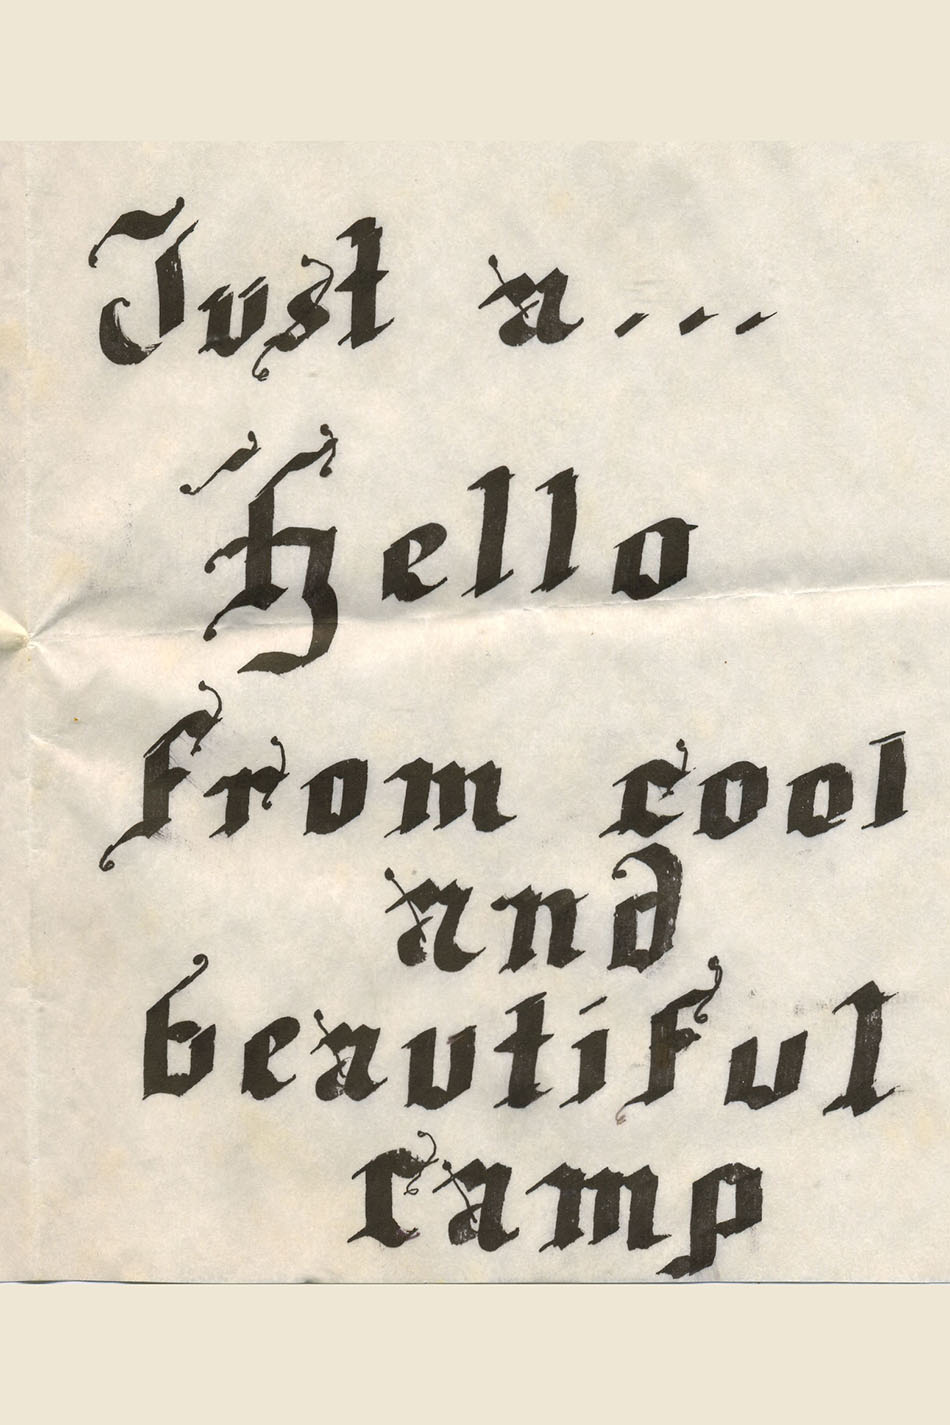 Just a...
Hello
from cool
and
beautiful
camp